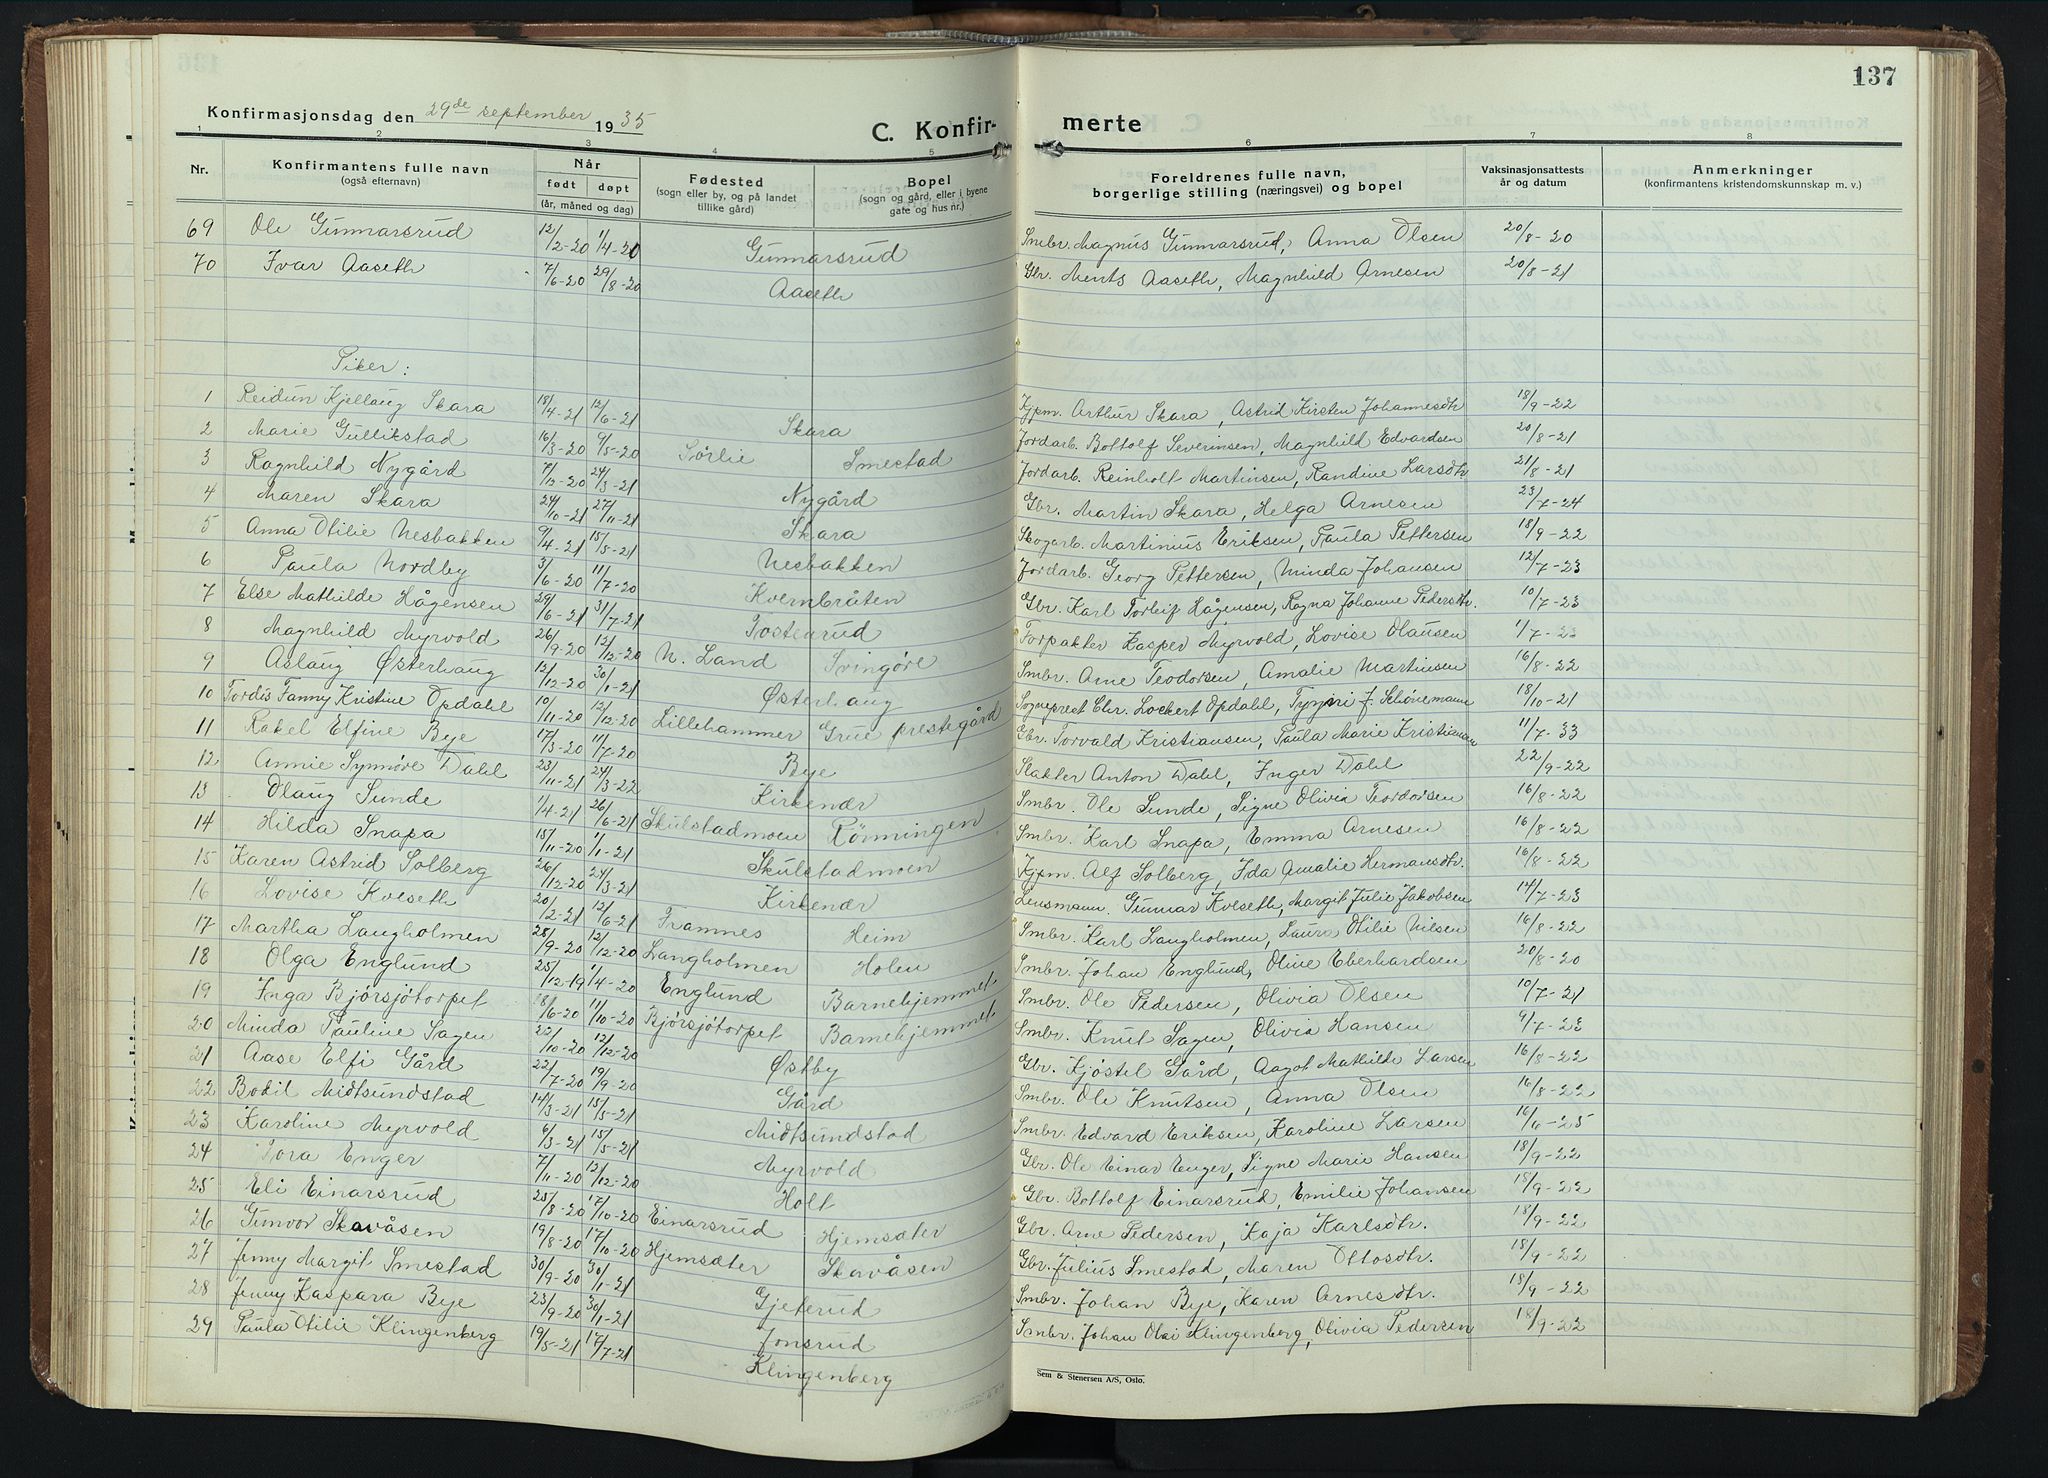 137
Konfirmasjonsdag den 29de september 1935
C. Konfirmerte
1 2 3 4 5 6 7 8
Nr. | Konfirmantens fulle navn (også efternavn) | Når født | døpt (år, måned og dag) | Fødested (sogn eller by, og på landet tillike gård) | Bopel (sogn og gård, eller i byene gate og hus nr.) | Foreldrenes fulle navn, borgerlige stilling (næringsvei) og bopel | Vaksinasjonsattests år og datum | Anmerkninger (konfirmantens kristendomskunnskap m. v.)
69 Ole Gunnarsrud 12/2-20 1/4-20 Gunnarsrud Smbr. Magnus Gunnarsrud, Anna Olsen 20/8-20
70 Ivar Aaseth 7/6-20 29/8-20 Aaseth Gbr. Ments Aaseth, Magnhild Arnesen 20/8-21
Piker:
1 Reidun Kjellaug Skara 18/4-21 12/6-21 Skara Kjpm. Arthur Skara, Astrid Kirsten Johannesdtr 18/9-22
2 Marie Gullikstad 16/3-20 9/5-20 Sørlie Smestad Jordarb. Bottolf Severinsen, Magnhild Edvardsen 20/8-21
3 Ragnhild Nygård 7/12-20 24/3-21 Nygård Jordarb. Reinholt Martinsen, Randine Larsdtr 21/8-21
4 Maren Skara 24/10-21 27/11-21 Skara Gbr. Martin Skara, Helga Arnesen 23/7-24
5 Anna Otilie Nesbakken 9/4-21 15/5-21 Nesbakken Skogarb. Martinius Eriksen, Paula Pettersen 18/9-22
6 Paula Nordby 3/6-20 11/7-20 Kvernbråten Jordarb. Georg Pettersen, Minda Johansen 12/7-23
7 Else Mathilde Hågensen 29/6-21 31/7-21 Tostenrud Gbr. Karl Torleif Hågensen, Ragna Johanne Pedersdtr. 10/7-23
8 Magnhild Myrvold 26/9-20 12/12-20 N. Land Svingøre Forpakter Kasper Myrvold, Lovise Olausen 1/7-23
9 Aslaug Østerhaug 12/12-20 30/1-21 Østerhaug Smbr. Arne Teodorsen, Amalie Martinsen 16/8-22
10 Tordis Fanny Kristine Opdahl 10/11-20 12/12-20 Lillehammer Grue prestegård Sogneprest Chr. Lockert Opdahl, f. Schønemann 18/10-21
11 Rakel Elfine Bye 17/3-20 11/7-20 Bye Gbr. Torvald Kristiansen, Paula Marie Kristiansen 11/7-33
12 Annie Synnøve Dahl 23/11-21 24/3-22 Kirkenær Slakter Anton Dahl, Inger Dahl 22/9-22
13 Olaug Sunde 1/4-21 26/6-21 Skulstadmoen Rønningen Smbr. Ole Sunde, Signe Olivia Teordorsen 16/8-22
14 Hilda Snapa 15/11-20 1/1-21 Skulstadmoen Smbr. Karl Snapa, Emma Arnesen 16/8-22
15 Karen Astrid Solberg 26/12-20 24/3-21 Kirkenær Kjpm. Alf Solberg, Ida Amalie Hermansdtr. 16/8-22
16 Lovise Kveseth 20/2-21 12/6-21 Tramnes Heim Lensmann. Gunnar Kveseth, Margit Julie Jakobsen 14/7-23
17 Martha Langholmen 28/9-20 12/12-20 Langholmen Holen Smbr. Karl Langholmen, Laura Otilie Nilsen 16/8-22
18 Olga Englund 25/12-19 1/4-20 Englund Barnehjemmet Smbr. Johan Englund, Oline Eberhardsen 20/8-20
19 Inga Bjørsjøtorpet 18/6-20 11/10-20 Bjørsjøtorpet Barnehjemmet Smbr. Ole Pedersen, Olivia Olsen 10/7-21
20 Minda Pauline Sagen 22/10-20 12/12-20 Østby Smbr. Knut Sagen, Olivia Hansen 9/7-23
21 Aase Elfi Gård 22/7-20 19/9-20 Gård Gbr. Kjøstel Gård, Aagot Mathilde Larsen 16/8-22
22 Bodil Midtsundstad 14/3-21 15/5-21 Midtsundstad Smbr. Ole Knutsen, Anna Olsen 16/8-22
23 Karoline Myrvold 6/3-21 15/5-21 Myrvold Smbr. Edvard Eriksen, Karoline Larsen 16/6-25
24 Tora Enger 7/11-20 12/12-20 Holt Gbr. Ole Einar Enger, Signe Marie Hansen 18/9-22
25 Eli Einarsrud 25/8-20 17/10-20 Einarsrud Hjemsæter Gbr. Bottolf Einarsrud, Emilie Johansen 18/9-22
26 Gunvor Skavåsen 19/8-20 17/10-20 Hjemsæter Skavåsen Gbr. Arne Pedersen, Kaja Karlsdtr. 18/9-22
27 Jenny Margit Smestad 30/9-20 30/1-21 Gjeterud Gbr. Julius Smestad, Maren Ottosdtr. 18/9-22
28 Jenny Kaspara Bye 23/9-20 30/1-21 Jonsrud Smbr. Johan Bye, Karen Arnesdtr. 18/9-22
29 Paula Otilie Klingenberg 19/5-21 17/7-21 Klingenberg Smbr. Johan Olai Klingenberg, Olivia Pedersen 18/9-22
Sem & Stenersen A/S, Oslo.